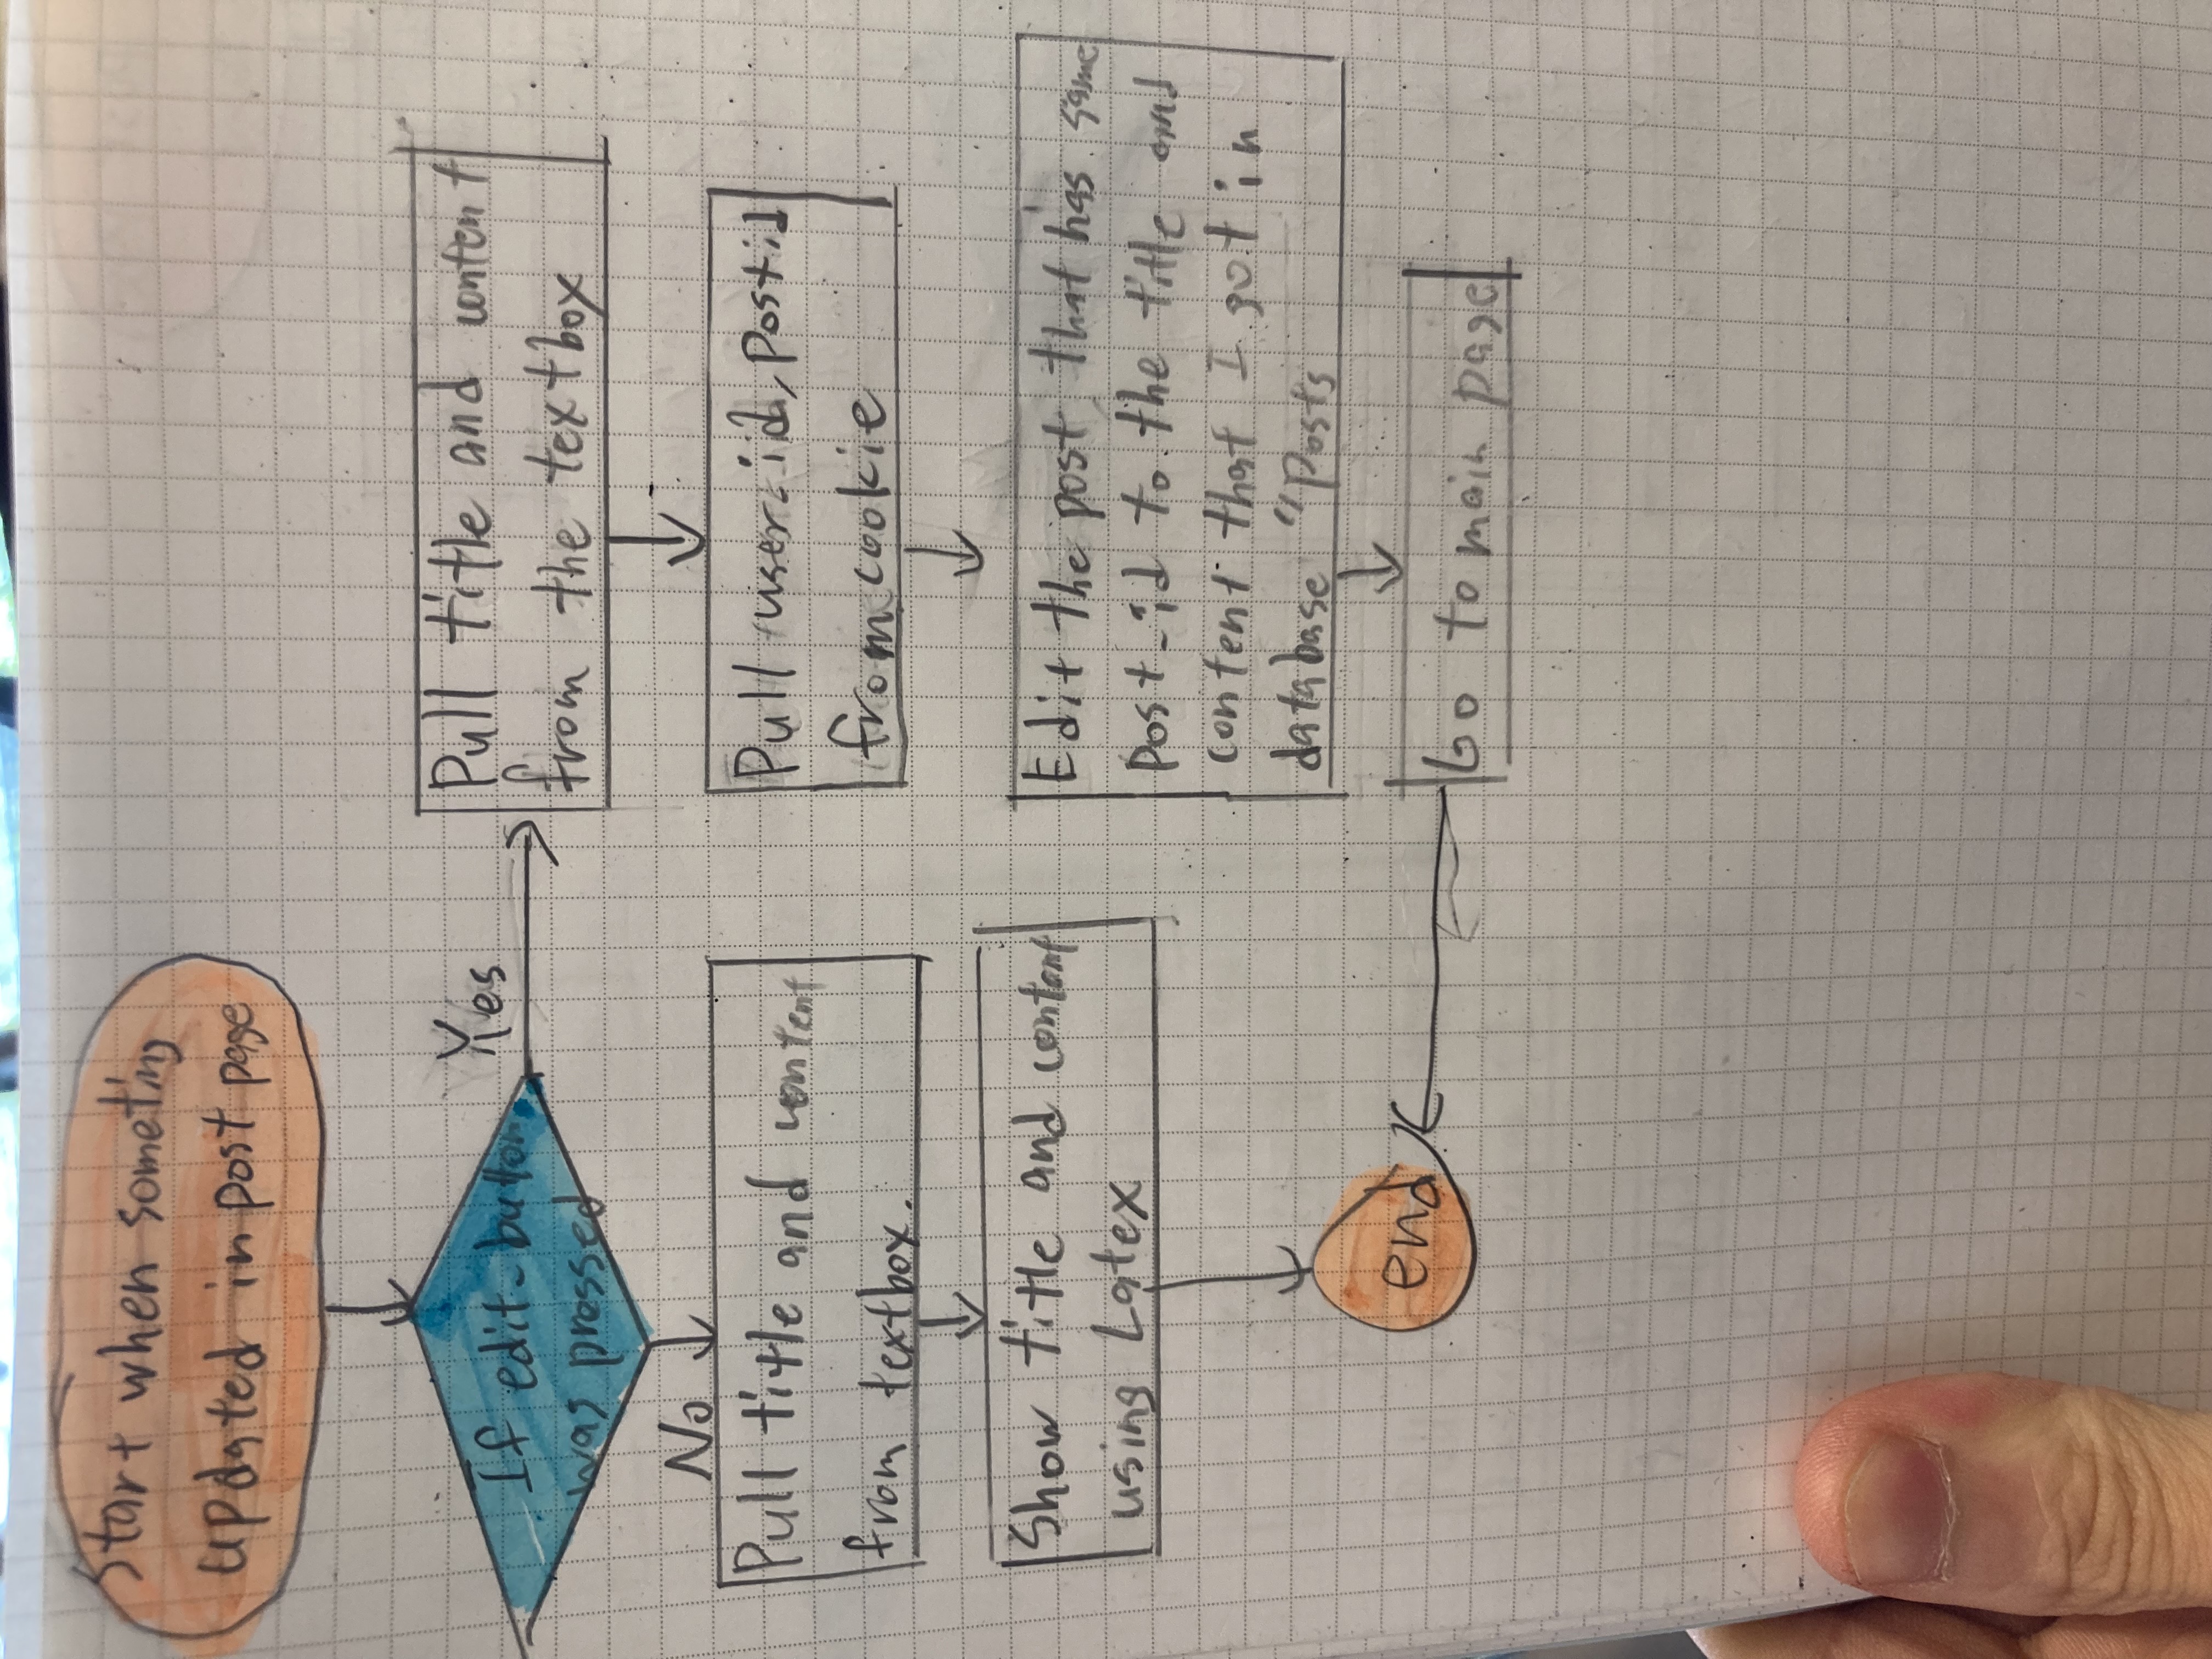 Start when someting
updated in post page
If edit_button
was pressed
Yes
No
Pull title and content
from textbox.
Show title and content
using Latex
end
Pull title and content
from the textbox
Pull user_id, postid
from cookie
Edit the post that has same
post_id to the title and
content that I got in
database "Posts
Go to main page